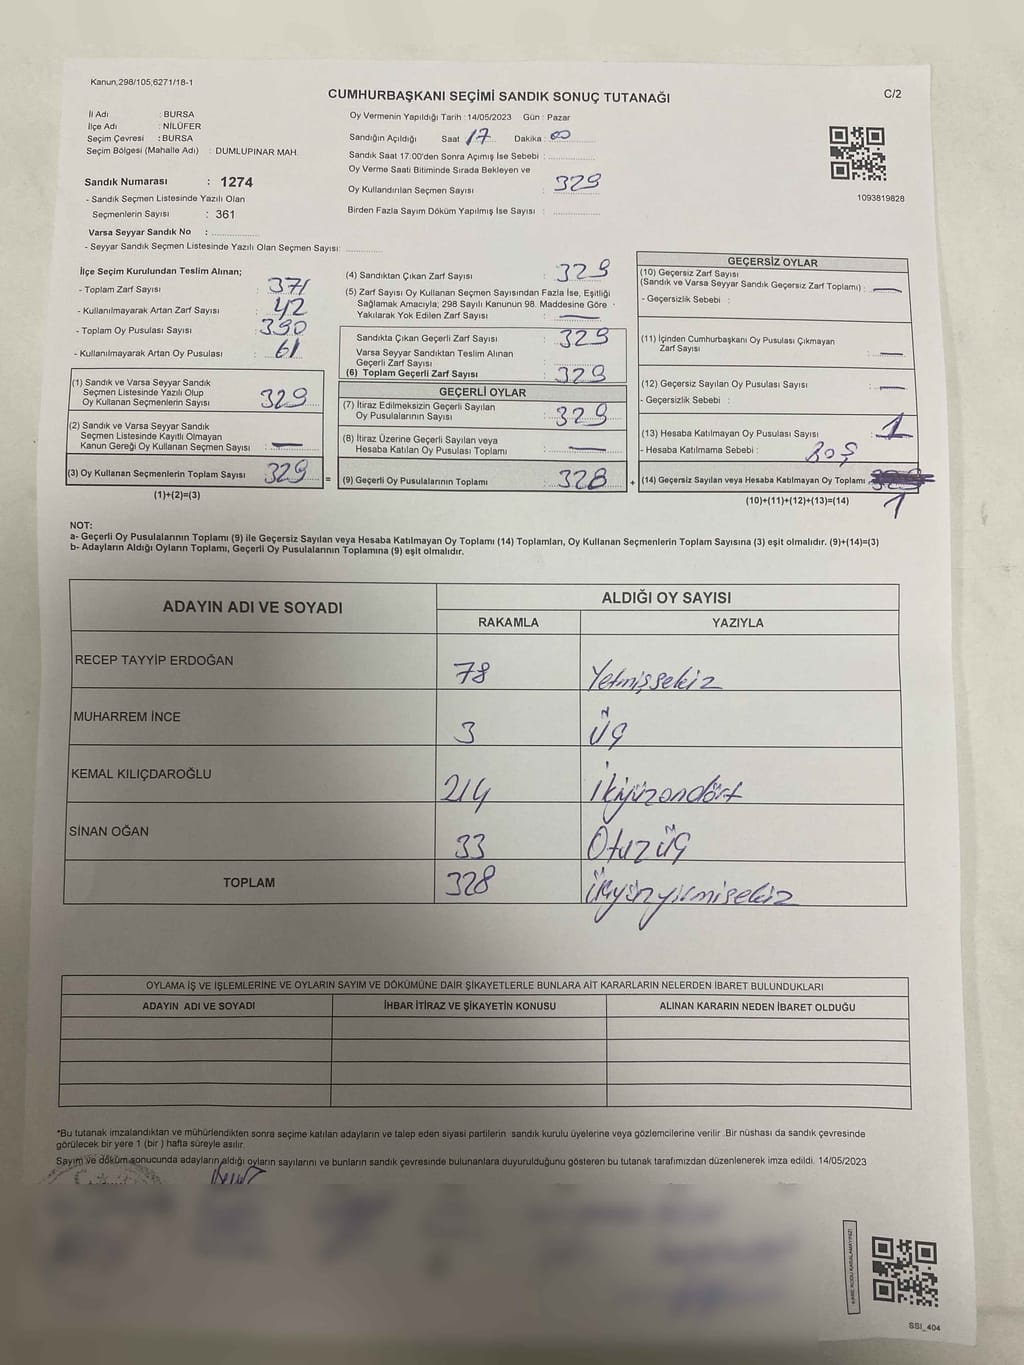 Kanun,298/105;6271/18-1
CUMHURBAŞKANI SEÇİMİ SANDIK SONUÇ TUTANAĞI
C/2
İl Adı : BURSA
İlçe Adı : NİLÜFER
Seçim Çevresi : BURSA
Seçim Bölgesi (Mahalle Adı) : DUMLUPINAR MAH.
Sandık Numarası : 1274
- Sandık Seçmen Listesinde Yazılı Olan
Seçmenlerin Sayısı : 361
Varsa Seyyar Sandık No :
- Seyyar Sandık Seçmen Listesinde Yazılı Olan Seçmen Sayısı:
Oy Vermenin Yapıldığı Tarih : 14/05/2023 Gün : Pazar
Sandığın Açıldığı Saat 17 Dakika : 00
Sandık Saat 17:00'den Sonra Açımış İse Sebebi :
Oy Verme Saati Bitiminde Sırada Bekleyen ve
Oy Kullandırılan Seçmen Sayısı : 329
Birden Fazla Sayım Döküm Yapılmış İse Sayısı :
1093819828
İlçe Seçim Kurulundan Teslim Alınan;
- Toplam Zarf Sayısı : 371
- Kullanılmayarak Artan Zarf Sayısı : 42
- Toplam Oy Pusulası Sayısı : 390
- Kullanılmayarak Artan Oy Pusulası : 61
(1) Sandık ve Varsa Seyyar Sandık
Seçmen Listesinde Yazılı Olup
Oy Kullanan Seçmenlerin Sayısı : 329
(2) Sandık ve Varsa Seyyar Sandık
Seçmen Listesinde Kayıtlı Olmayan
Kanun Gereği Oy Kullanan Seçmen Sayısı : —
(3) Oy Kullanan Seçmenlerin Toplam Sayısı 329 =
(1)+(2)=(3)
(4) Sandıktan Çıkan Zarf Sayısı : 329
(5) Zarf Sayısı Oy Kullanan Seçmen Sayısından Fazla İse, Eşitliği
Sağlamak Amacıyla; 298 Sayılı Kanunun 98. Maddesine Göre
Yakılarak Yok Edilen Zarf Sayısı : —
Sandıkta Çıkan Geçerli Zarf Sayısı : 329
Varsa Seyyar Sandıktan Teslim Alınan
Geçerli Zarf Sayısı :
(6) Toplam Geçerli Zarf Sayısı : 329
GEÇERLİ OYLAR
(7) İtiraz Edilmeksizin Geçerli Sayılan
Oy Pusulalarının Sayısı : 329
(8) İtiraz Üzerine Geçerli Sayılan veya
Hesaba Katılan Oy Pusulası Toplamı : —
(9) Geçerli Oy Pusulalarının Toplamı : 328 +
GEÇERSİZ OYLAR
(10) Geçersiz Zarf Sayısı
(Sandık ve Varsa Seyyar Sandık Geçersiz Zarf Toplamı) : —
- Geçersizlik Sebebi :
(11) İçinden Cumhurbaşkanı Oy Pusulası Çıkmayan
Zarf Sayısı : —
(12) Geçersiz Sayılan Oy Pusulası Sayısı : —
- Geçersizlik Sebebi :
(13) Hesaba Katılmayan Oy Pusulası Sayısı : 1
- Hesaba Katılmama Sebebi : Boş
(14) Geçersiz Sayılan veya Hesaba Katılmayan Oy Toplamı
(10)+(11)+(12)+(13)=(14) 1
NOT:
a- Geçerli Oy Pusulalarının Toplamı (9) ile Geçersiz Sayılan veya Hesaba Katılmayan Oy Toplamı (14) Toplamları, Oy Kullanan Seçmenlerin Toplam Sayısına (3) eşit olmalıdır. (9)+(14)=(3)
b- Adayların Aldığı Oyların Toplamı, Geçerli Oy Pusulalarının Toplamına (9) eşit olmalıdır.
ADAYIN ADI VE SOYADI
ALDIĞI OY SAYISI
RAKAMLA YAZIYLA
RECEP TAYYİP ERDOĞAN 78 Yetmişsekiz
MUHARREM İNCE 3 Üç
KEMAL KILIÇDAROĞLU 214 İkiyüzondört
SİNAN OĞAN 33 Otuzüç
TOPLAM 328 Üçyüzyirmisekiz
OYLAMA İŞ VE İŞLEMLERİNE VE OYLARIN SAYIM VE DÖKÜMÜNE DAİR ŞİKAYETLERLE BUNLARA AİT KARARLARIN NELERDEN İBARET BULUNDUKLARI
ADAYIN ADI VE SOYADI İHBAR İTİRAZ VE ŞİKAYETİN KONUSU ALINAN KARARIN NEDEN İBARET OLDUĞU
*Bu tutanak imzalandıktan ve mühürlendikten sonra seçime katılan adayların ve talep eden siyasi partilerin sandık kurulu üyelerine veya gözlemcilerine verilir .Bir nüshası da sandık çevresinde
görülecek bir yere 1 (bir ) hafta süreyle asılır.
Sayım ve döküm sonucunda adayların aldığı oyların sayılarını ve bunların sandık çevresinde bulunanlara duyurulduğunu gösteren bu tutanak tarafımızdan düzenlenerek imza edildi. 14/05/2023
KARE KODU KARALAMAYINIZ!
SSI_404